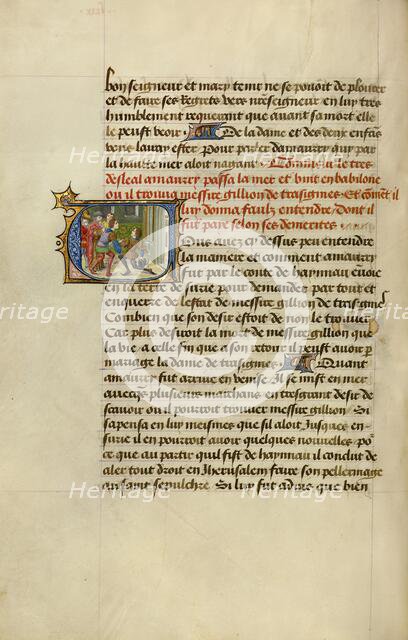 bon seigneur et mary temt ne se pouoit de plourer
et de faire ses regretz vers nreseigneur en luy tres
humblement requerant que auant sa mort elle
le peust veoir De la dame et des deux enfans
vous lairay ester pour parler damaury quy par
la haulte mer aloit nagant Comment le tres
desleal amaury passa la mer et vint en babilone
ou il trouua messire gillion de trasignes Et coment il
luy donna faulx entendre dont il
fut paye selon ses demerites
Ous auez cy dessus peu entendre
la maniere et comment amaury
par le conte de haynnau
en terre de surie pour demander par tout et
enquerre de lestat de messire gillion de trasignes
Combien que son desir estoit de non le trouuer
Car plus desiroit la mort de messire gillion que
la vie a celle fin que a son retour il peust auoir p
mariage la dame de trasignes Quant
amaury fut arriue en venise Il se mist en mer
auecq plusieurs marchans en tresgrant desir de
scauoir ou il pourroit trouuer messire gillion Si
sapensa en luy meismes que sil aloit Jusques en
surie il en pourroit auoir quelques nouuelles po
ce que au partir quil fist de haynnau il conclut de
aler tout droit en Jherusalem faire son pellerinage
au saint sepulchre Si luy fut aduis que bien
Heritage
Heritage
Heritage
Heritage
Heritage
Heritage